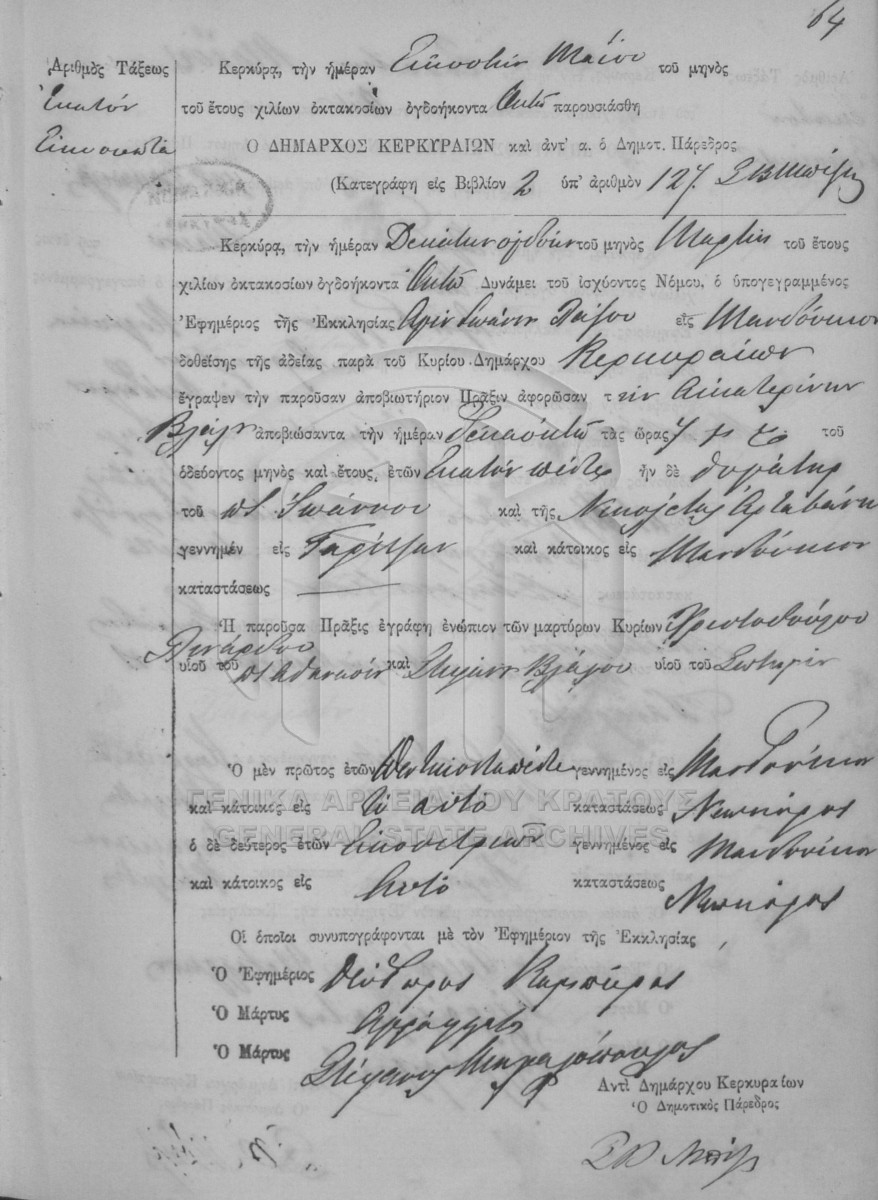 64
Ἀριθμὸς Τάξεως
Ἑκατόν
Κερκύρᾳ, τὴν ἡμέραν Εἰκοστὴν Μαΐου τοῦ μηνὸς
τοῦ ἔτους χιλίων ὀκτακοσίων ὀγδοήκοντα Ὀκτώ παρουσιάσθη
Ὁ ΔΗΜΑΡΧΟΣ ΚΕΡΚΥΡΑΙΩΝ καὶ ἀντ' α. ὁ Δημοτ. Πάρεδρος
(Κατεγράφη εἰς Βιβλίον 2 ὑπ' ἀριθμὸν 127.
Κερκύρᾳ, τὴν ἡμέραν Δεκάτην ὀγδόην τοῦ μηνὸς Μαρτίου τοῦ ἔτους
χιλίων ὀκτακοσίων ὀγδοήκοντα Ὀκτώ Δυνάμει τοῦ ἰσχύοντος Νόμου, ὁ ὑπογεγραμμένος
Ἐφημέριος τῆς Ἐκκλησίας Ἁγίου Ἰωάννου εἰς Μανδούκιον
δοθείσης τῆς ἀδείας παρὰ τοῦ Κυρίου Δημάρχου Κερκυραίων
ἔγραψεν τὴν παροῦσαν ἀποβιωτήριον Πρᾶξιν ἀφορῶσαν τ ὴν Αἰκατερίνην
ἀποβιώσαντα τὴν ἡμέραν Δεκαοκτώ τὰς ὥρας 7 μ τοῦ
ὁδεύοντος μηνὸς καὶ ἔτους, ἐτῶν Ἑκατόν πέντε ἦν δὲ θυγάτηρ
τοῦ π. Ἰωάννου καὶ τῆς Νικολέτας Ἀρταβάνη
γεννημέν εἰς Γαρίτσαν καὶ κάτοικος εἰς Μανδούκιον
καταστάσεως
Ἡ παροῦσα Πρᾶξις ἐγράφη ἐνώπιον τῶν μαρτύρων Κυρίων Χριστοδούλου
υἱοῦ τοῦ π. Ἀθανασίου καὶ υἱοῦ τοῦ Σωτηρίου
Ὁ μὲν πρῶτος ἐτῶν Πεντηκονταπέντε γεννημένος εἰς Μανδούκιον
καὶ κάτοικος εἰς τὸ αὐτό καταστάσεως Νεωκόρος
ὁ δὲ δεύτερος ἐτῶν Εἰκοσιτριῶν γεννημένος εἰς Μανδούκιον
καὶ κάτοικος εἰς αὐτό καταστάσεως Νεωκόρος
ΓΕΝΙΚΑ ΑΡΧΕΙΑ ΤΟΥ ΚΡΑΤΟΥΣ
GENERAL STATE ARCHIVES
Οἱ ὁποῖοι συνυπογράφονται μὲ τὸν Ἐφημέριον τῆς Ἐκκλησίας
Ὁ Ἐφημέριος Θεόδωρος
Ὁ Μάρτυς
Ὁ Μάρτυς
Ἀντὶ Δημάρχου Κερκυραίων
Ὁ Δημοτικὸς Πάρεδρος